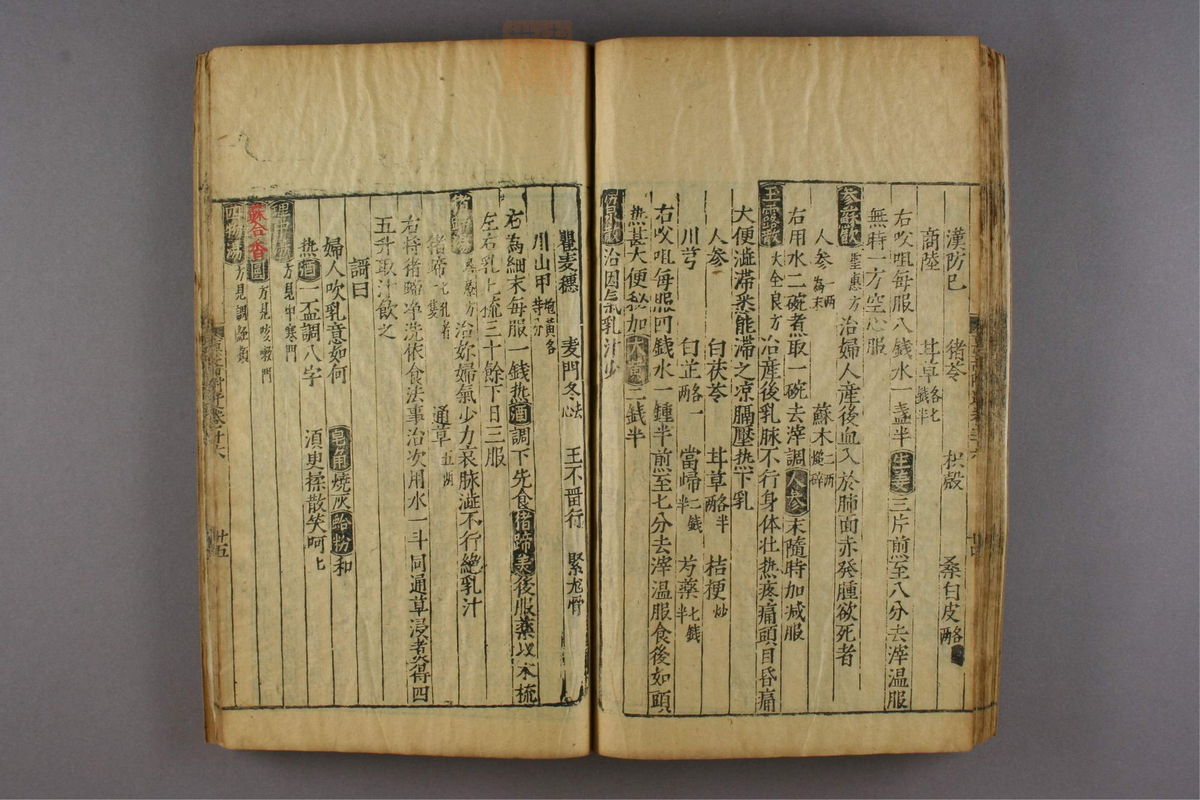 漢防巳 猪苓 枳殻 桑白皮各二兩
商陸 甘草各七錢半
右㕮咀每服八錢水一盞半生姜三片煎至八分去滓温服
無時一方空心服
參蘇散聖惠方治婦人産後血入於肺面赤發腫欲死者
人參一兩為末 蘇木二兩搥碎
右用水二碗煮取一碗去滓調人參末隨時加减服
玉露散大全良方治産後乳脉不行身体壮热疼痛頭目昏痛
大便澁滯悉能滯之凉膈壓热下乳
人參 白茯苓 甘草各半兩 桔梗炒
川芎 白芷各一兩 當歸二錢半 芍藥七錢半
右㕮咀每服四錢水一鍾半煎至七分去滓温服食後如頭
热甚大便秘加大黄二錢半
治因氣乳汁少
瞿麦穗 麦門冬去心 王不畱行 緊龙骨
川山甲炮黄各等分
右為細末每服一錢热酒調下先食猪蹄羙後服藥以木梳
左右乳上梳三十餘下日三服
猪蹄湯治妳婦氣少力衰脉澁不行絶乳汁
猪蹄一隻 通草五兩
右将猪蹄净洗依食法事治次用水一斗同通草浸煮得四
五升取汁飲之
謌曰
婦人吹乳意如何 皂角燒灰蛤粉和
热酒一盃調八字 湏臾揉散笑呵匕
理中湯方見中寒門
蘇合香圓方見咳嗽門
四物湯方見調經類